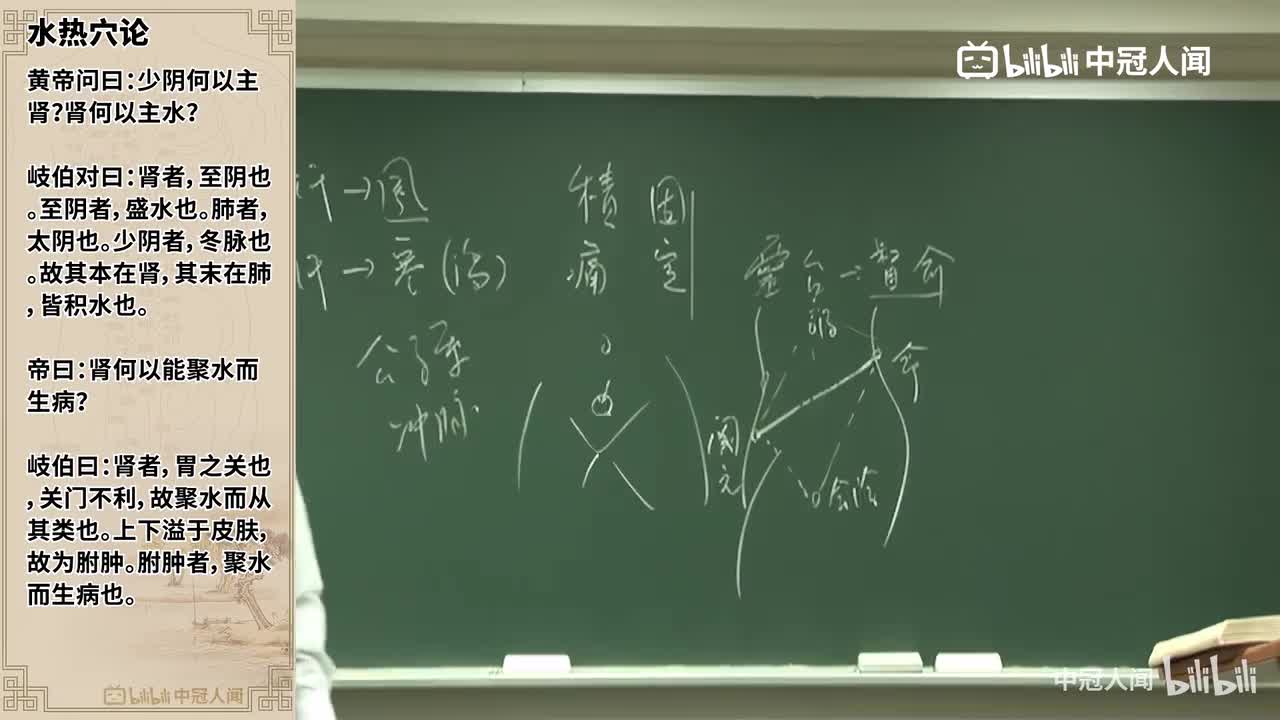 水热穴论
黄帝问曰：少阴何以主
肾？肾何以主水？
岐伯对曰：肾者，至阴也
。至阴者，盛水也。肺者，
太阴也。少阴者，冬脉也
。故其本在肾，其末在肺
，皆积水也。
帝曰：肾何以能聚水而
生病？
岐伯曰：肾者，胃之关也
，关门不利，故聚水而从
其类也。上下溢于皮肤，
故为胕肿。胕肿者，聚水
而生病也。
bilibili 中冠人闻
汗→風
汗→寒
積 固
痛 定
靈台→智命
冲脉
命
関元
会陰
bilibili 中冠人闻
中冠人闻 bilibili